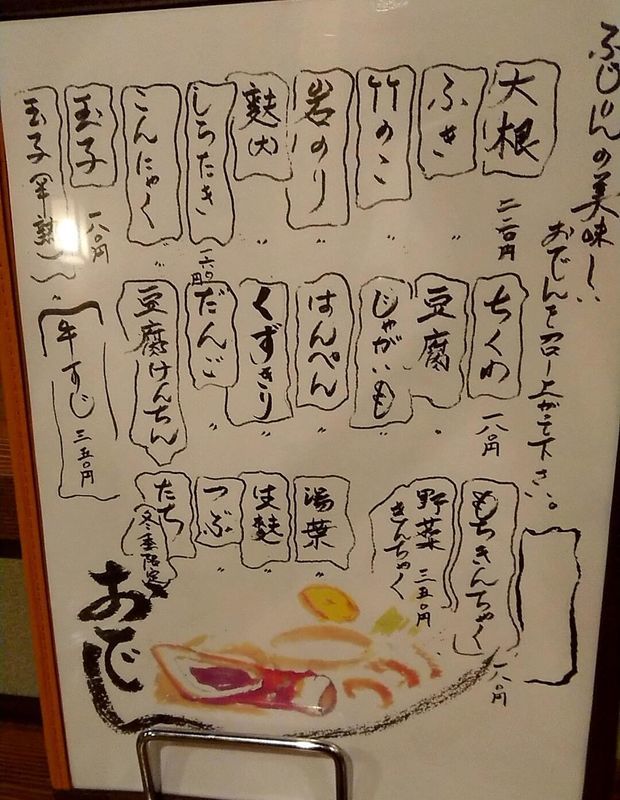 ふじりんの美味しい
おでんを召し上がって下さい。
大根 二二〇円
ふき 〃
竹のこ 〃
岩のり 〃
麸(大) 〃
しらたき 一六〇円
こんにゃく 〃
玉子 一八〇円
玉子(半熟) 〃
ちくわ 一八〇円
豆腐 〃
じゃがいも 〃
はんぺん 〃
くずきり 〃
だんご 〃
豆腐けんちん 〃
牛すじ 三五〇円
もちきんちゃく 一八〇円
野菜きんちゃく 三五〇円
湯葉 〃
生麸 〃
つぶ 〃
たち
冬季限定
おでん